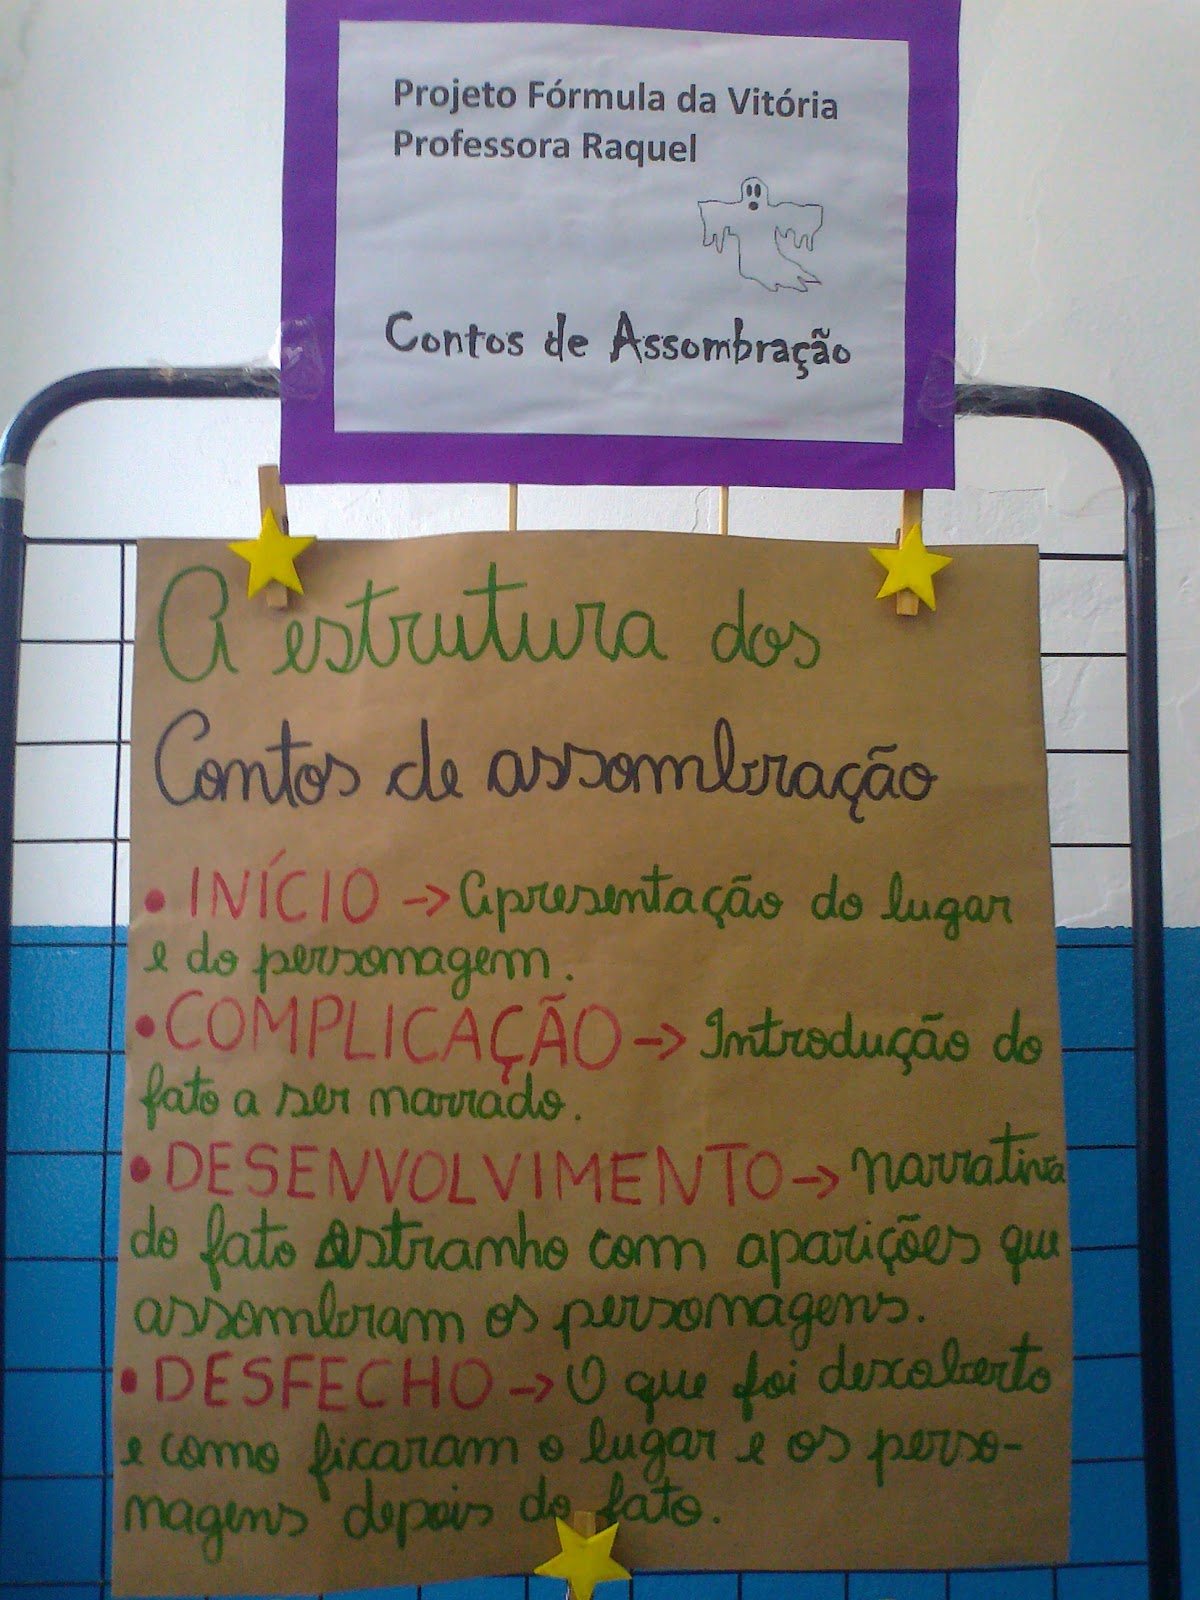 Projeto Fórmula da Vitória
Professora Raquel
Contos de Assombração
A estrutura dos
Contos de assombração
• INÍCIO -> Apresentação do lugar
e do personagem.
• COMPLICAÇÃO -> Introdução do
fato a ser narrado.
• DESENVOLVIMENTO -> narrativa
do fato estranho com aparições que
assombram os personagens.
• DESFECHO -> O que foi descoberto
e como ficaram o lugar e os perso-
nagens depois do fato.